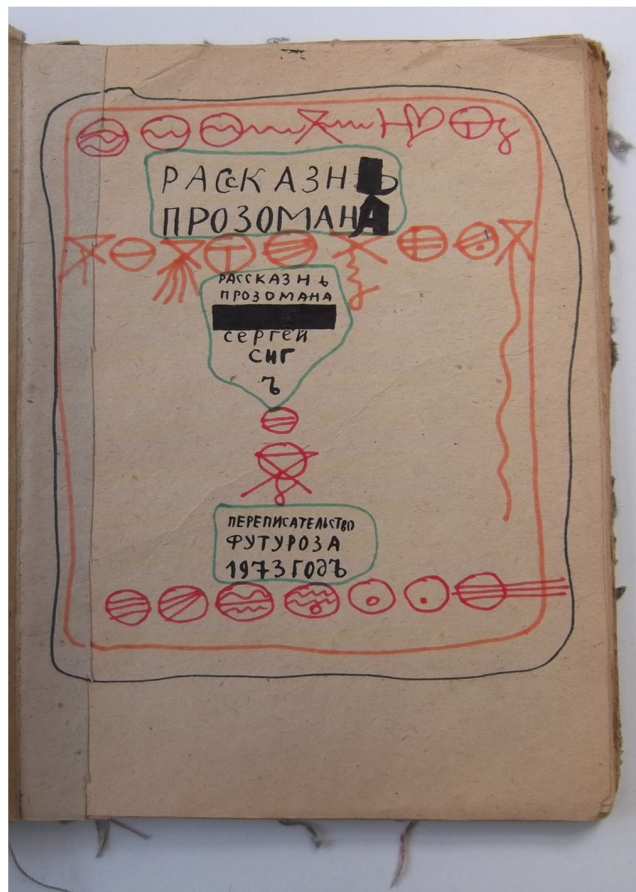 РАСсКАЗНЬ
ПРОЗОМАНА
РАССКАЗНЬ
ПРОЗОМАНА
СЕРГЕЙ
СИГ
Ъ
ПЕРЕПИСАТЕЛЬСТВО
ФУТУРОЗА
1973 ГОДЪ